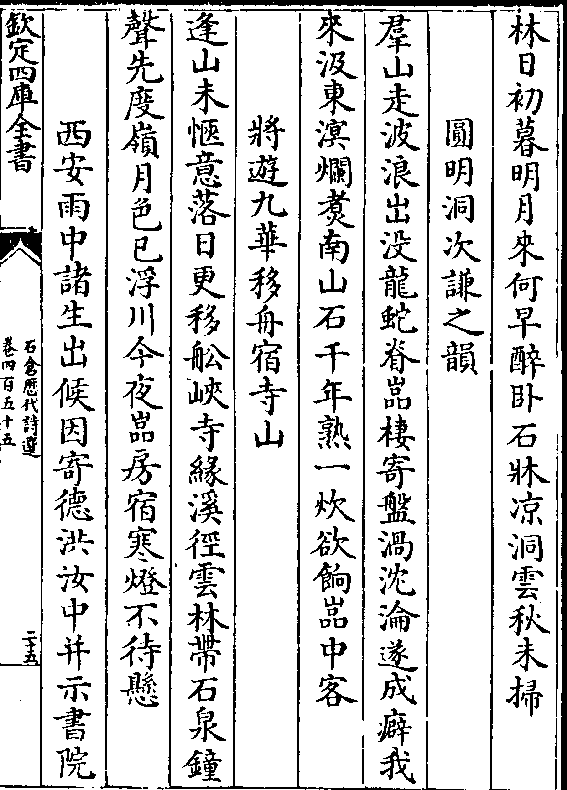 林日初暮明月來何早醉卧石牀凉洞雲秋未掃
圓明洞次謙之韻
羣山走波浪出没龍蛇脊嵓棲寄盤渦沈淪遂成癖我
來汲東溟爛煑南山石千年熟一炊欲餉嵓中客
將遊九華移舟宿寺山
逢山未愜意落日更移舩峽寺緣溪徑雲林帶石泉鐘
聲先度嶺月色已浮川今夜嵓房宿寒燈不待懸
西安雨中諸生出候因寄德洪汝中并示書院
欽定四庫全書
石倉歷代詩選
卷四百五十五
二十五